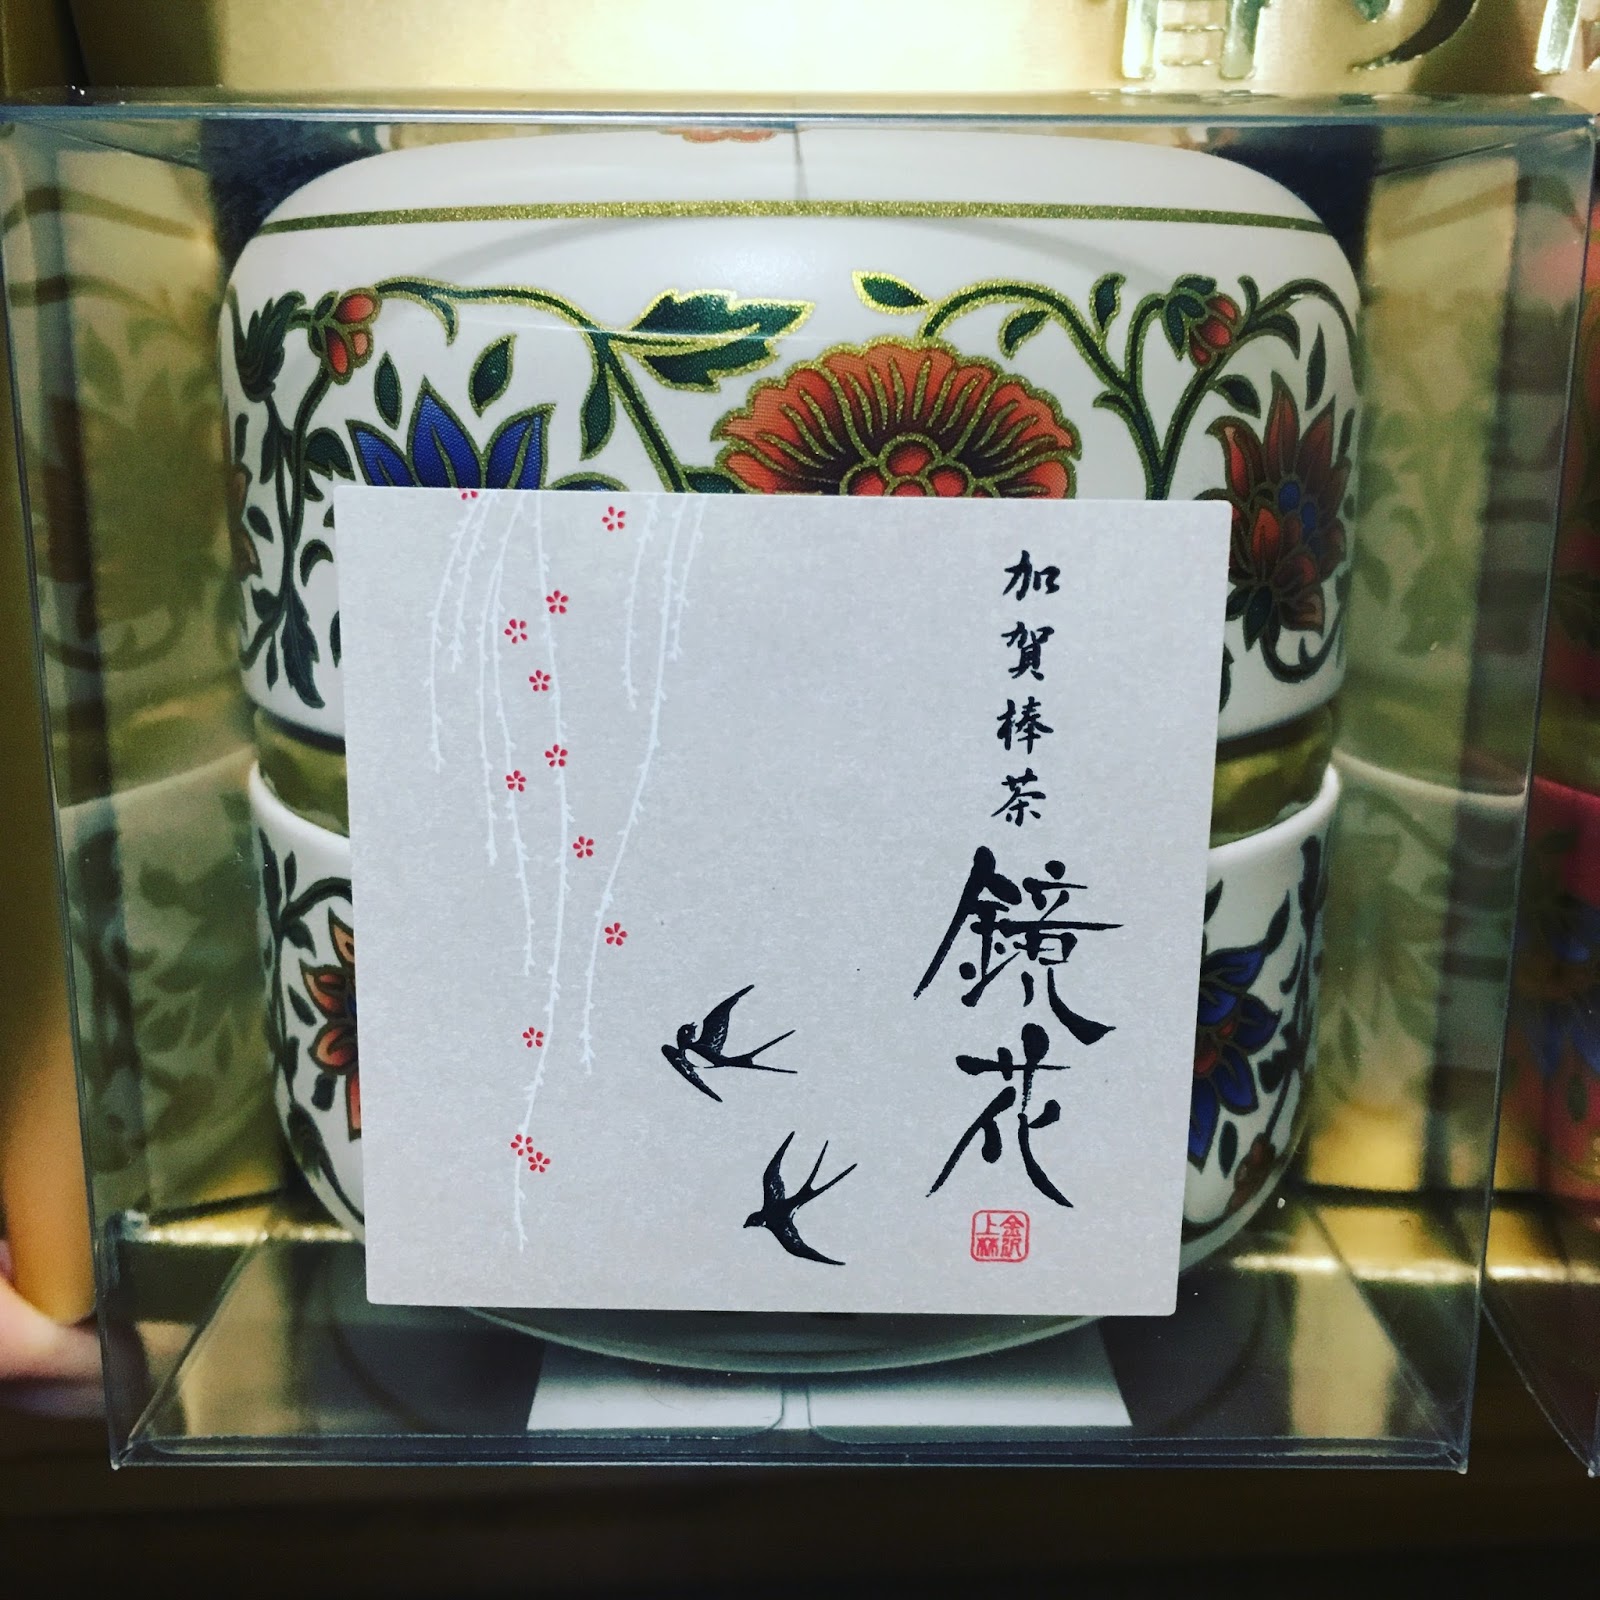 加賀棒茶
鏡花
金沢
上林